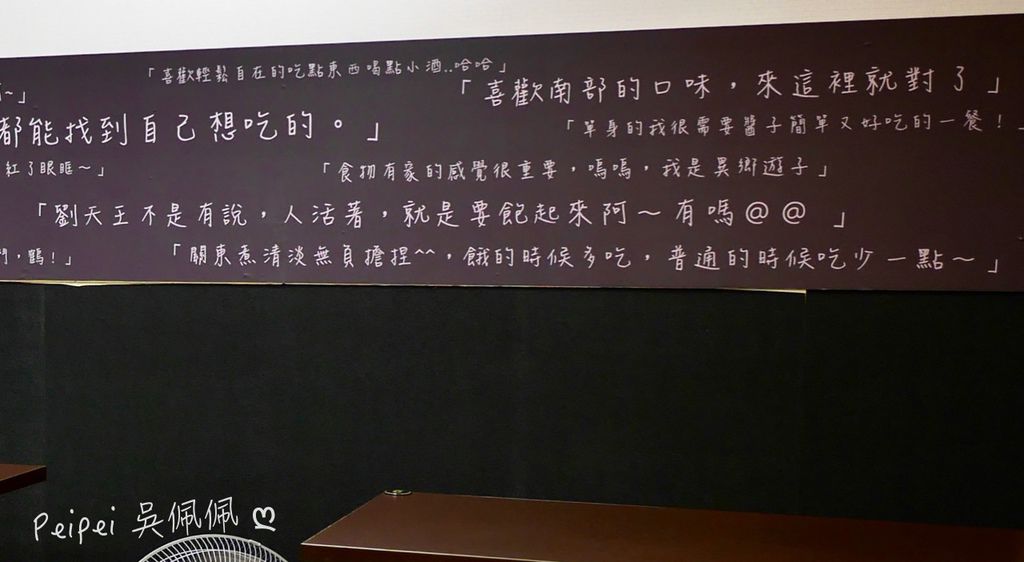 「喜歡輕鬆自在的吃點東西喝點小酒..哈哈」
～」
「喜歡南部的口味，來這裡就對了」
都能找到自己想吃的。」
「單身的我很需要醬子簡單又好吃的一餐！」
紅了眼眶～」
「食物有家的感覺很重要，嗚嗚，我是異鄉遊子」
「劉天王不是有說，人活著，就是要飽起來阿～有嗎@@ 」
，鶴！」
「關東煮清淡無負擔捏^^，餓的時候多吃，普通的時候吃少一點～」
Peipei 吳佩佩